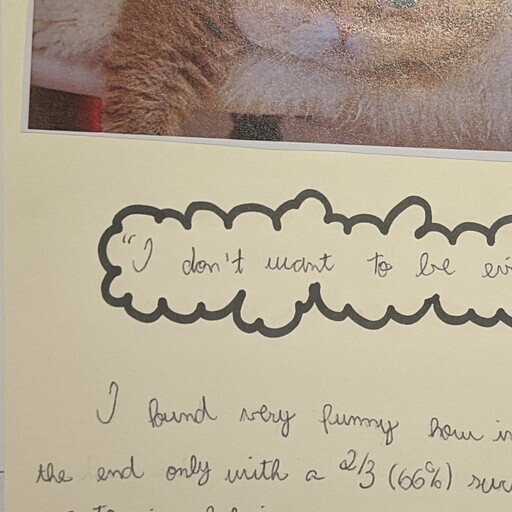 "I don't want to be
I found very funny how
the end only with a 2/3 (66%)